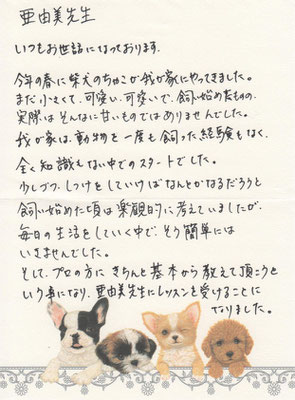 亜由美先生
いつもお世話になっております。
今年の春に柴犬のちゃこが我が家にやってきました。
まだ小さくて、可愛い、可愛いで、飼い始めたものの、
実際はそんなに甘いものではありませんでした。
我が家は、動物を一度も飼った経験もなく、
全く知識もない中でのスタートでした。
少しづつ、しつけをしていけばなんとかなるだろうと
飼い始めた頃は楽観的に考えていましたが、
毎日の生活をしていく中で、そう簡単には
いきませんでした。
そして、プロの方にきちんと基本から教えて頂こうと
いう事になり、亜由美先生にレッスンを受けることに
なりました。